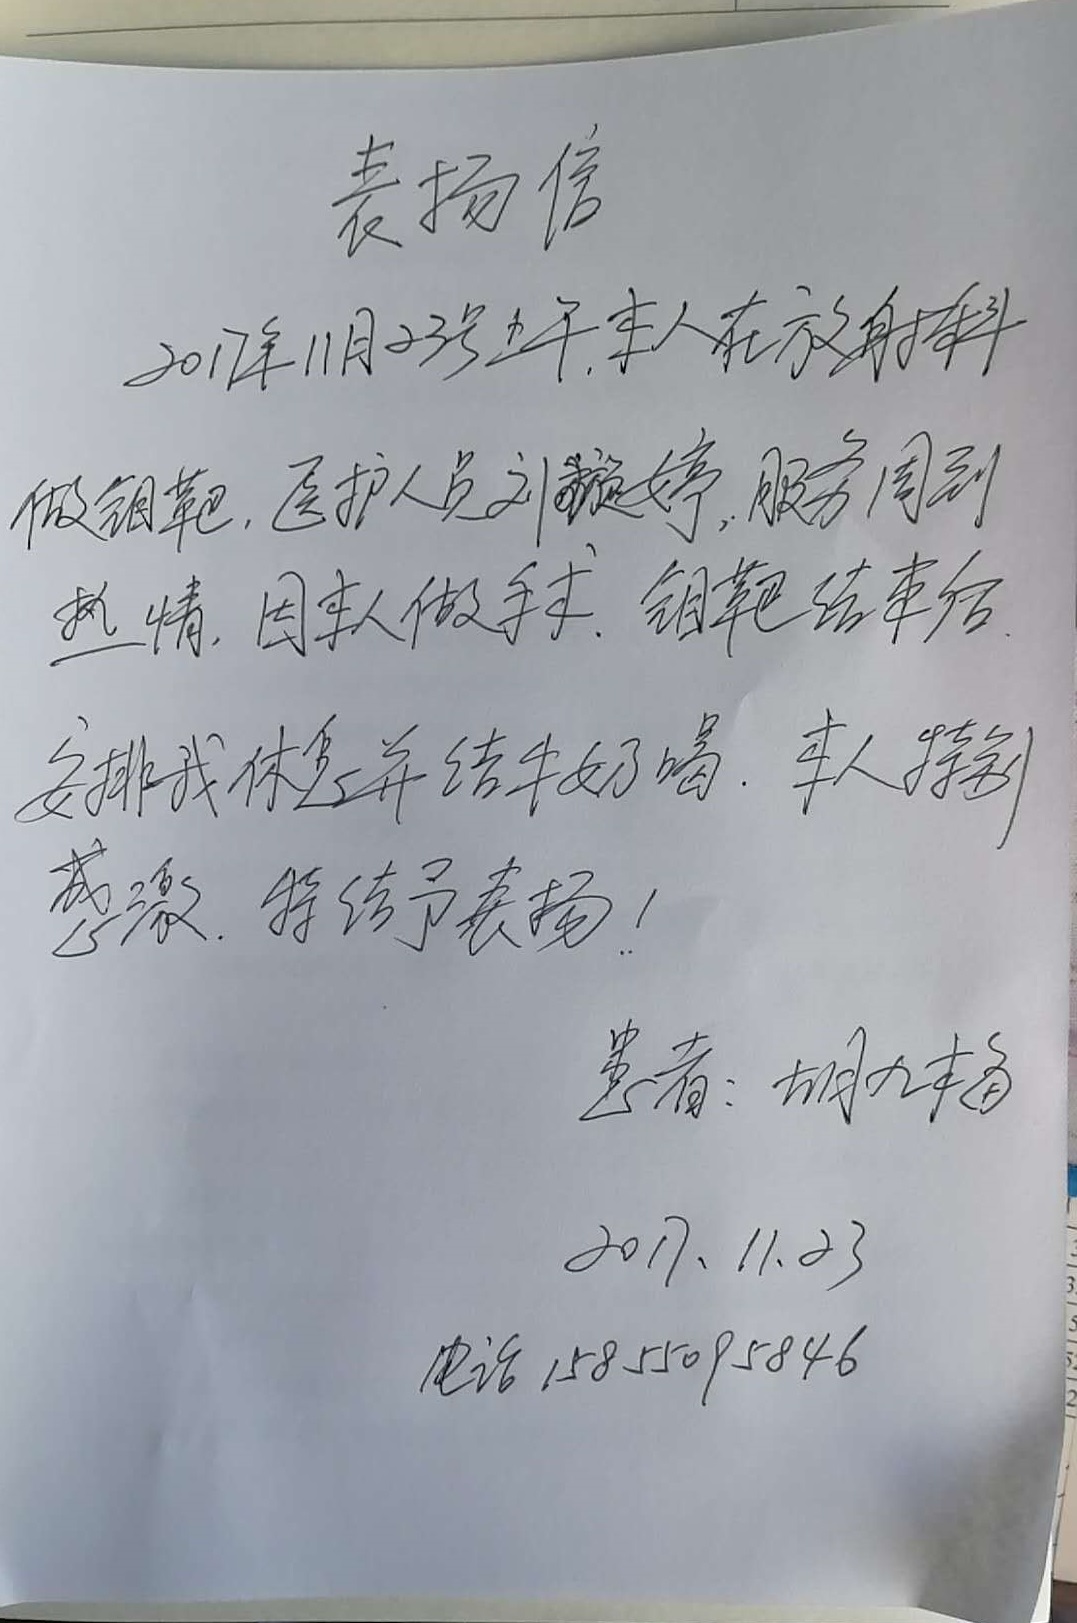 表扬信
2017年11月23号上午,本人在放射科
做钼靶,医护人员刘婷,服务周到
热情,因本人做手术,钼靶结束后
安排我休息并给牛奶喝.本人特别
感激.特给予表扬!
患者:胡九梅
2017、11、23
电话15855095846